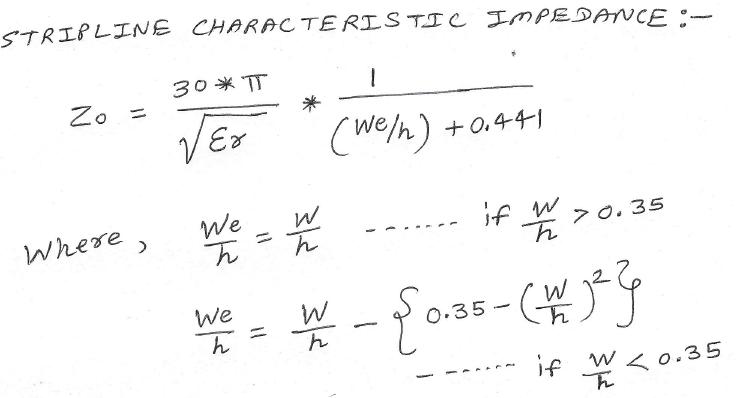 STRIPLINE CHARACTERISTIC IMPEDANCE :-
Zo = (30 * π) / √Ɛr * 1 / ((We/h) + 0.441)
Where, We/h = W/h ------- if W/h > 0.35
We/h = W/h - {0.35 - (W/h)²}
------- if W/h < 0.35